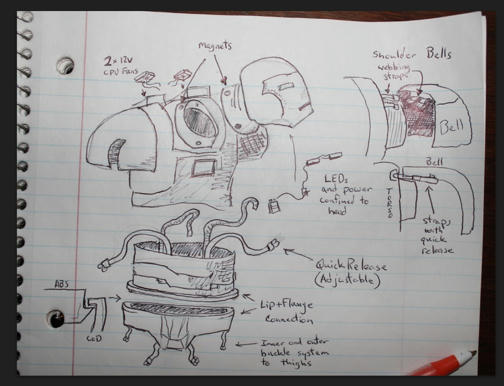 magnets
2x12v
CPU Fans
Shoulder Bells
webbing
straps
Bell
LEDs
and power
confined to
head
Bell
TORSO
straps
with
quick
release
Quick Release
(Adjustable)
ABS
COD
Lip+Flange
Connection
Inner and outer
buckle system
to thighs